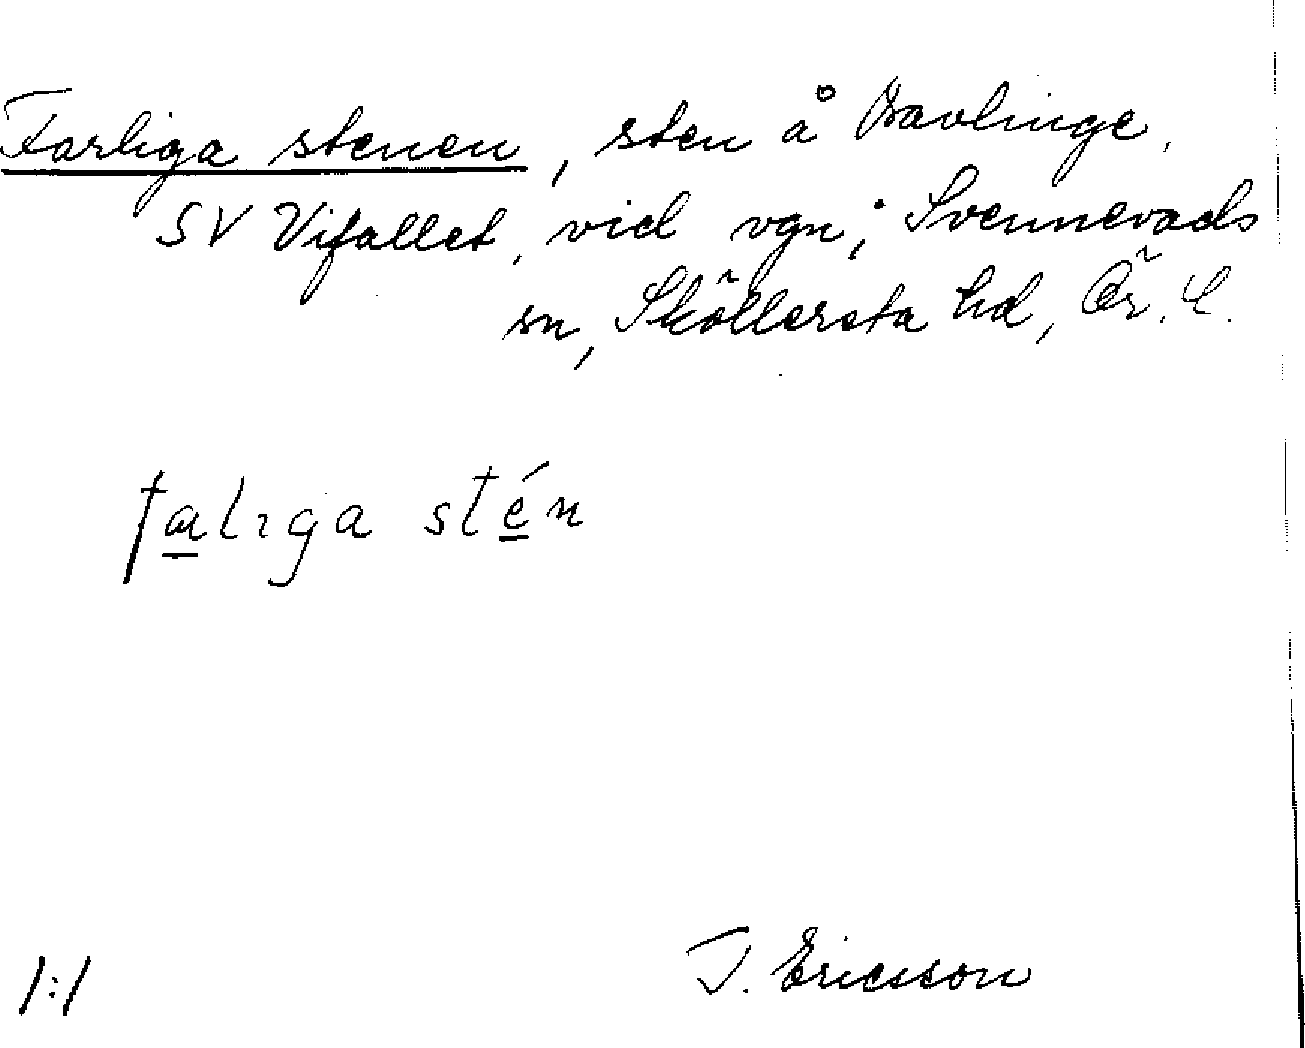 Farliga stenen, sten å Bavlinge,
SV Vifallet, vid vgn; Svennevads
sn, Sköllersta hd, Ör. l.
faliga stén
1:1 J. Ericsson